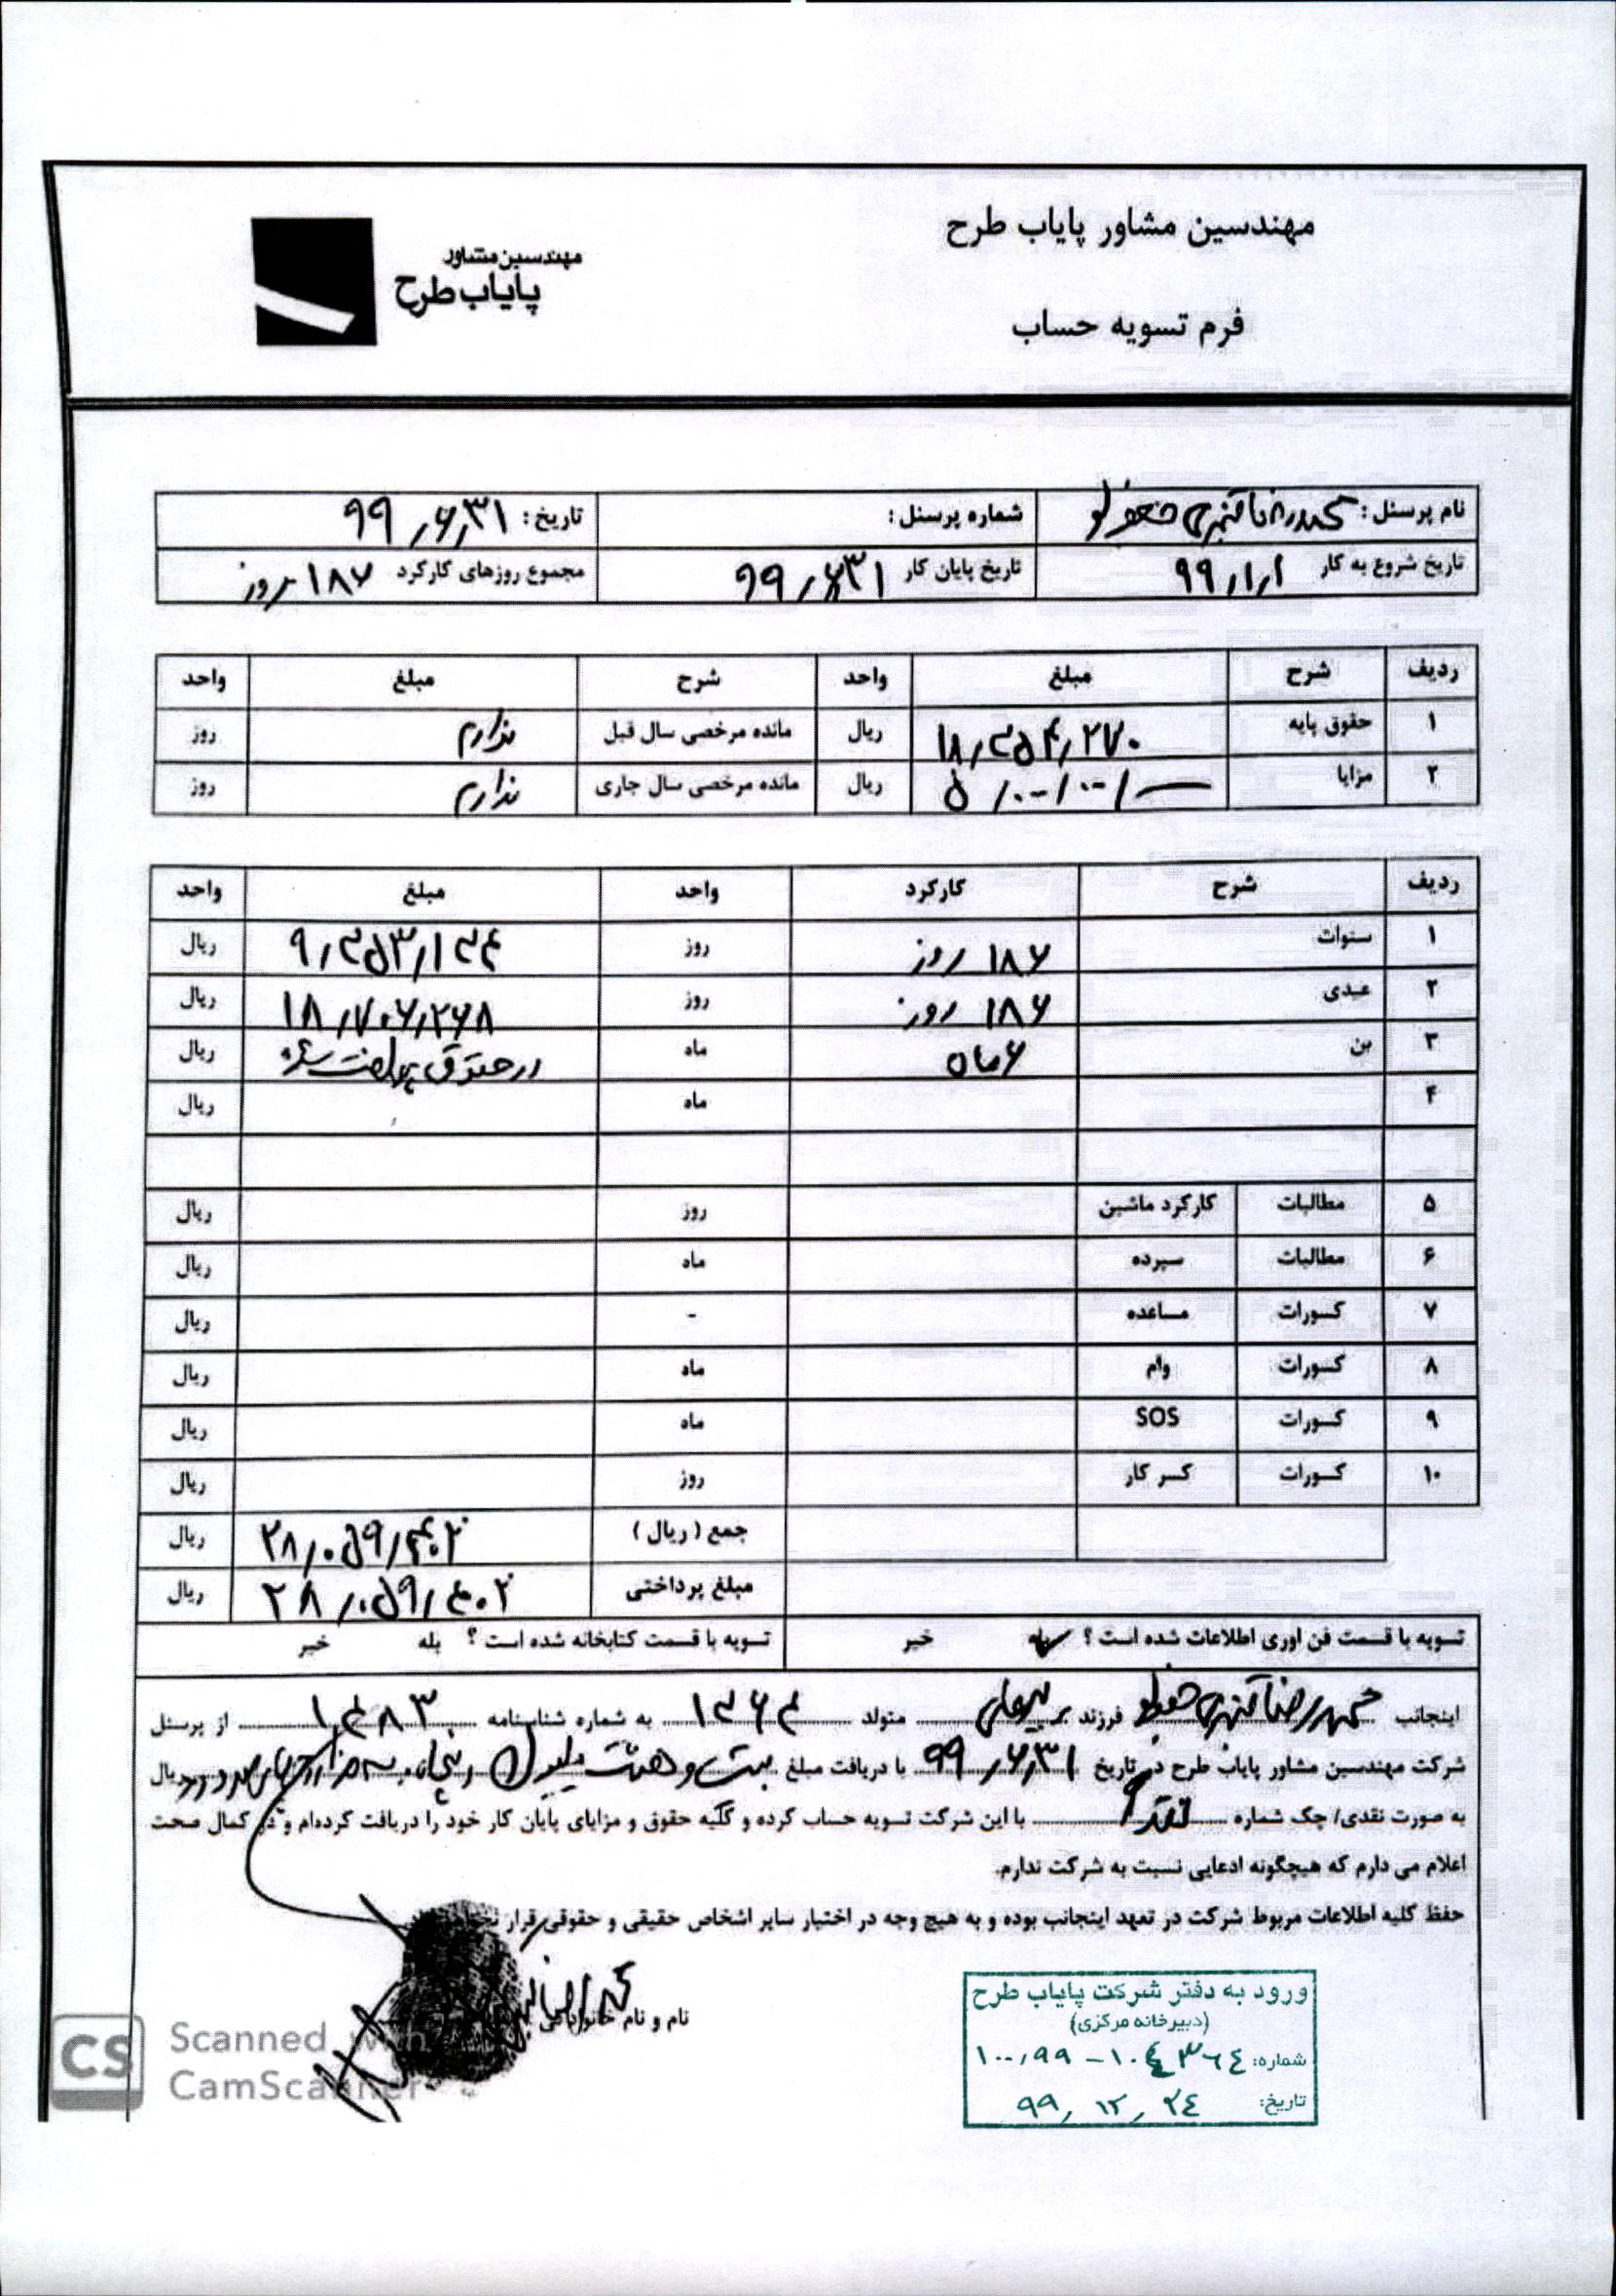 مهندسین مشاور پایاب طرح
مهندسین مشاور
پایاب طرح
فرم تسویه حساب
نام پرسنل : شماره پرسنل : تاریخ : ۹۹,۶,۳۱
تاریخ شروع به کار ۹۹,۱,۱ تاریخ پایان کار ۹۹,۶,۳۱ مجموع روزهای کارکرد ۱۸۶ روز
ردیف شرح مبلغ واحد شرح مبلغ واحد
۱ حقوق پایه ۱۸,۳۵۴,۲۷۰ ریال مانده مرخصی سال قبل ندارم روز
۲ مزایا ریال مانده مرخصی سال جاری ندارم روز
ردیف شرح کارکرد واحد مبلغ واحد
۱ سنوات ۱۸۶ روز روز ۹,۳۵۳,۱۳۴ ریال
۲ عیدی ۱۸۶ روز روز ۱۸,۷۰۶,۲۶۸ ریال
۳ بن ۶ ماه ماه در حقوق پرداخت شده ریال
۴ ماه ریال
۵ مطالبات کارکرد ماشین روز ریال
۶ مطالبات سپرده ماه ریال
۷ کسورات مساعده - ریال
۸ کسورات وام ماه ریال
۹ کسورات SOS ماه ریال
۱۰ کسورات کسر کار روز ریال
جمع ( ریال ) ۲۸,۰۵۹,۴۰۲ ریال
مبلغ پرداختی ۲۸,۰۵۹,۴۰۲ ریال
تسویه با قسمت فن اوری اطلاعات شده است ؟ بله خیر تسویه با قسمت کتابخانه شده است ؟ بله خیر
اینجانب محمدرضا فرزند متولد ۱۳۶۴ به شماره شناسنامه از پرسنل
شرکت مهندسین مشاور پایاب طرح در تاریخ ۹۹,۶,۳۱ با دریافت مبلغ بیست و هشت میلیون ریال
به صورت نقدی/ چک شماره با این شرکت تسویه حساب کرده و کلیه حقوق و مزایای پایان کار خود را دریافت کرده‌ام و در کمال صحت
اعلام می دارم که هیچگونه ادعایی نسبت به شرکت ندارم.
حفظ کلیه اطلاعات مربوط شرکت در تعهد اینجانب بوده و به هیچ وجه در اختیار سایر اشخاص حقیقی و حقوقی قرار
نام و نام خانوادگی محمدرضا
ورود به دفتر شرکت پایاب طرح
(دبیرخانه مرکزی)
شماره: ۱۰۰,۹۹-۱۰۴۳۶۴
تاریخ: ۹۹, ۱۲, ۲۴
CS Scanned with
CamScanner